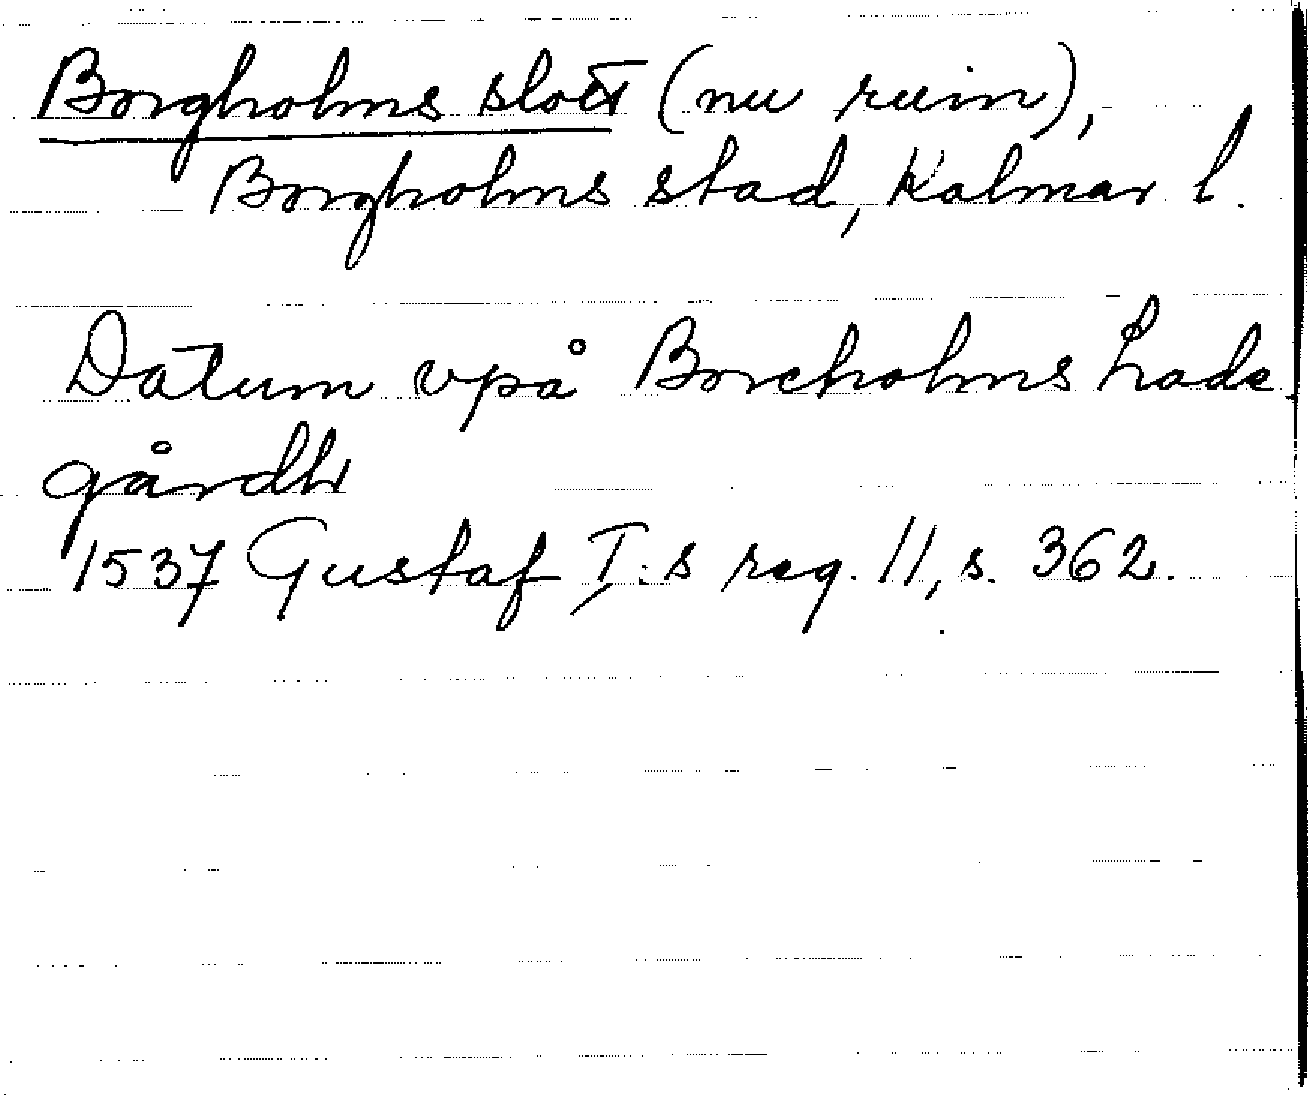 Borgholms slott (nu ruin),
Borgholms stad, Kalmar l.
Datum vpå Borcholms Lade
gårdh
1537 Gustaf I:s reg. 11, s. 362.